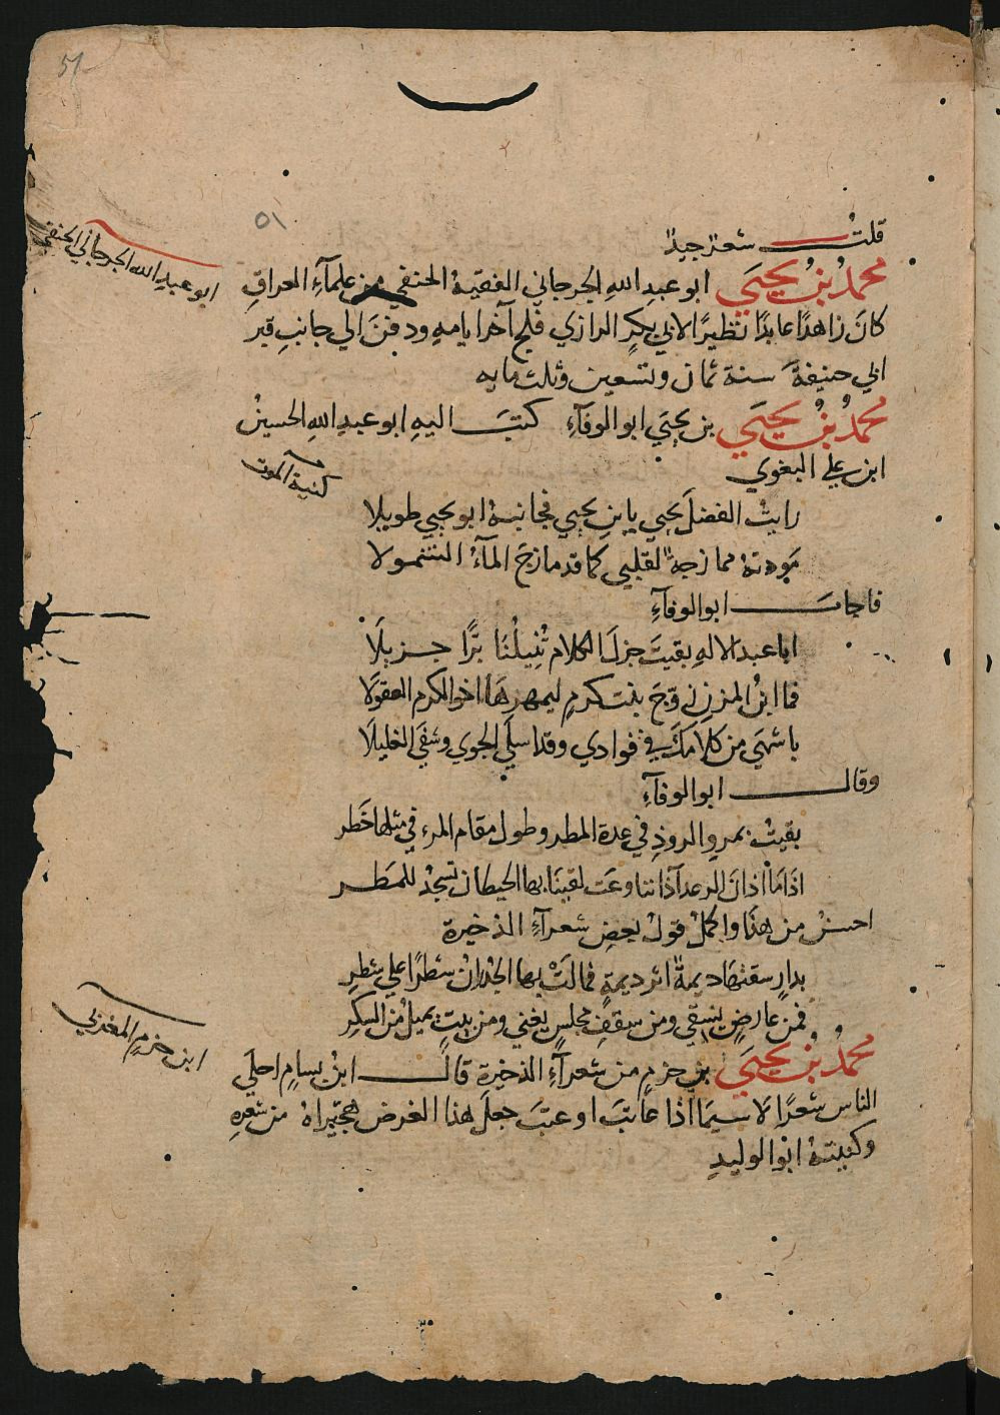 51
٥١
قلت شعر جيد
ابو عبد الله الجرجاني الحنفي
محمد بن يحيي ابو عبدِ اللهِ الجرجاني الفقيهُ الحنفي من علمآءِ العراقِ
كانَ زاهدًا عابدًا نظيرًا لابي بكرٍ الرازي فلج آخر ايامهِ ودفنَ الي جانبِ قبر
ابي حنيفةَ سنة ثمان وتسعين وثلث مايه
محمد بن يحيي بن يحيَي ابو الوفآءِ كتبَ اليهِ ابو عبدِ اللهِ الحسينُ
ابن علي البغوي
كنية الموت
رايتُ الفضلَ يحيي يابن يحيي فجانبهُ ابو يحيي طويلا
مودتهُ ممازجهٌ لقلبي كما قد مازجَ المآءُ الشمولا
فاجابَ ابو الوفآءِ
ابا عبد الالهِ بقيتَ جزلَ الكلام تُنِيلُنَا برًّا جزيلَا
فما ابنُ المزن زوّجَ بنت كرمٍ ليمهرهَا اخو الكرم العقولَا
باشهَي من كلَامكَ في فوادي وقد اسلَي الجوي وشفَي الغليلَا
وقال ابو الوفآءِ
بقيتُ بمرو الروذِ في عدة المطر وطول مقام المرء في مثلها خَطر
اذَا مَا اذانَ الرعد آذاننا وعَت لقينَا بها الحيطان تسجدُ للمَطر
احسنُ من هذَا واكملُ قولُ بعضِ شعرآءِ الذخيرة
بدارٍ سقتهَا ديمةٌ اثر ديمةٍ فمالتْ بها الجدرانُ شطرًا علي شطرِ
فمن عارضٍ يسقي ومن سقفِ مجلسٍ يغني ومن بيتٍ يميلُ من السكرِ
ابن حزم المغربي
محمدُ بنُ يحيَي بن حزمٍ من شعرآءِ الذخيرة قالَ ابنُ بسامٍ احلَي
الناس شعرًا لَا سيمَا اذا عاتبَ او عتبَ جعلَ هذا الغرض هجّيراهُ من شعرهِ
وكنيتهُ ابوُ الوليدِ